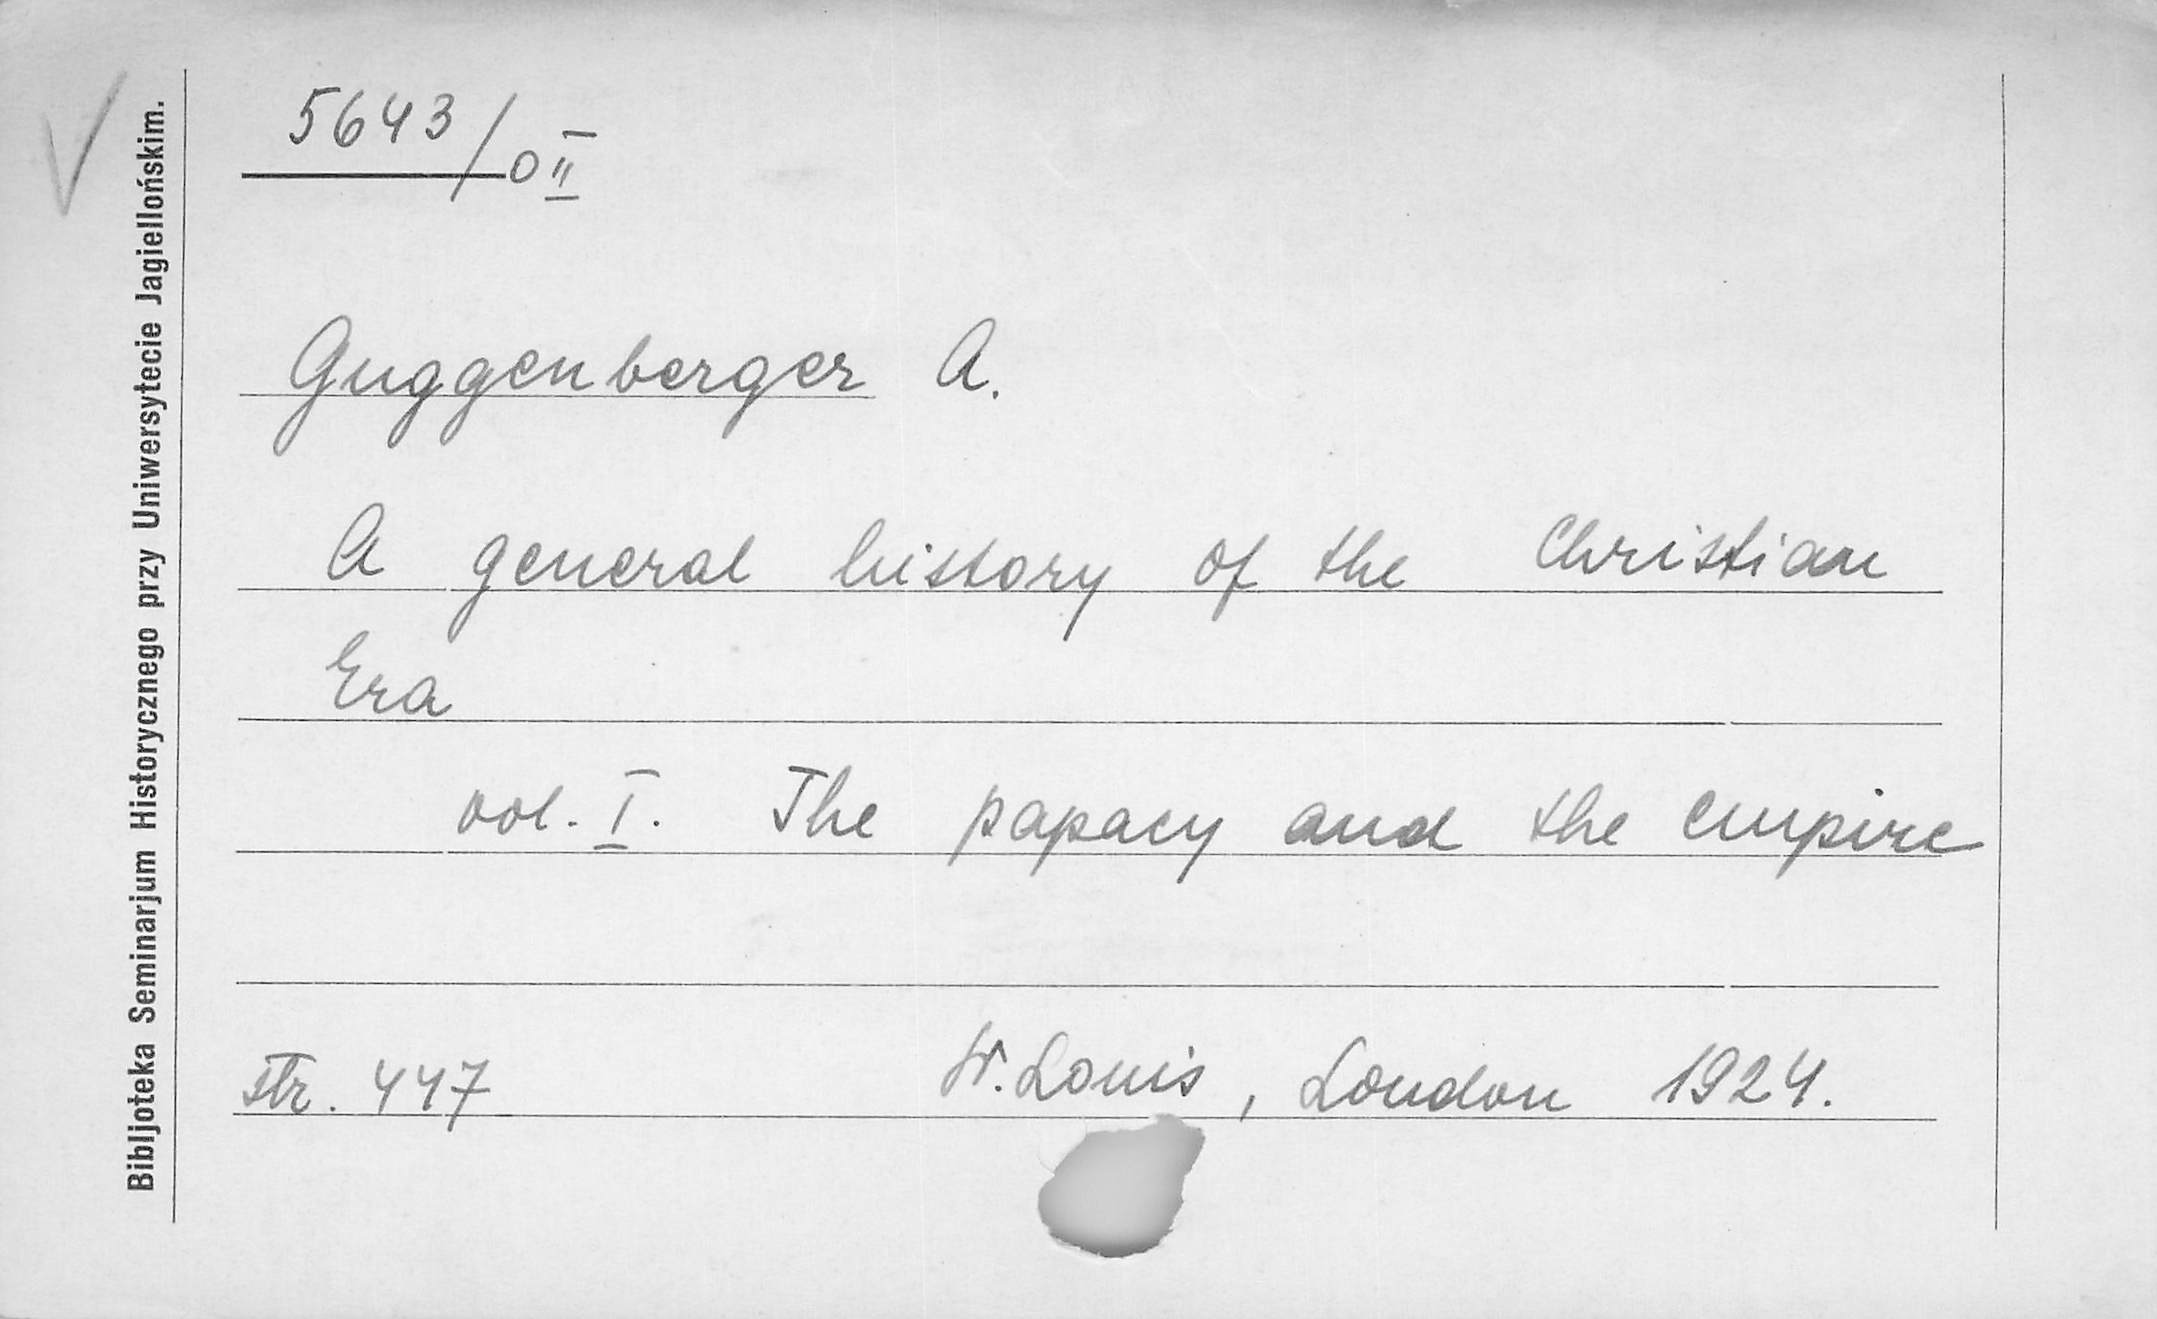 5643/OII
Guggenberger A.
A general history of the Christian
Era
vol. I. The papacy and the empire
str. 447
St. Louis, London 1924.
Bibljoteka Seminarjum Historycznego przy Uniwersytecie Jagiellońskim.